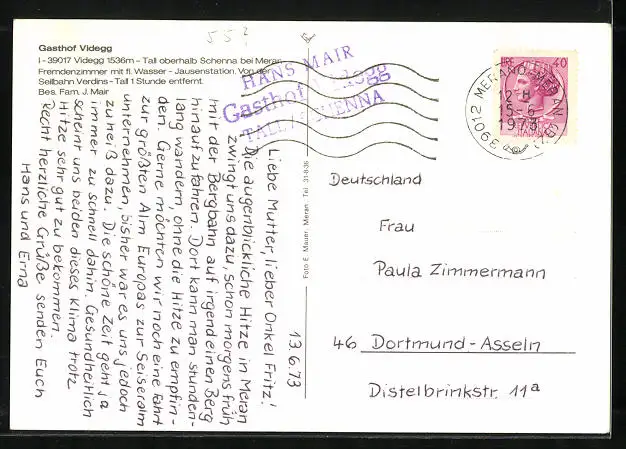 55?
Gasthof Videgg
I - 39017 Videgg 1536m - Tall oberhalb Schenna bei Meran
Fremdenzimmer mit fl. Wasser - Jausenstation. Von der
Seilbahn Verdins - Tall 1 Stunde entfernt.
Bes. Fam. J. Mair
HANS MAIR
Gasthof Videgg
TALL/SCHENNA
LIRE 40
39012 MERANO-MERAN
12-H
15-6
1973
(BZ)
13.6.73
Liebe Mutter, lieber Onkel Fritz!
Die augenblickliche Hitze in Meran
zwingt uns dazu, schon morgens früh
mit der Bergbahn auf irgend einen Berg
hinaufzufahren. Dort kann man stunden-
lang wandern, ohne die Hitze zu empfin-
den. Gerne möchten wir noch eine Fahrt
zur größten Alm Europas zur Seiseralm
unternehmen, bisher war es uns jedoch
zu heiß dazu. Die schöne Zeit geht ja
immer zu schnell dahin. Gesundheitlich
scheint uns beiden dieses Klima trotz
Hitze sehr gut zu bekommen.
Recht herzliche Grüße senden Euch
Hans und Erna
Foto E. Mauer, Meran - Tel. 31-8-36
Deutschland
Frau
Paula Zimmermann
46 Dortmund-Asseln
Distelbrinkstr. 11a